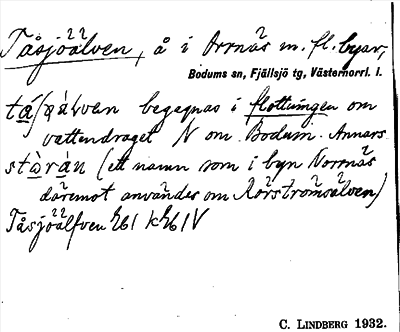 Tåsjöälven, å i Orrnäs m. fl. byar,
Bodums sn, Fjällsjö tg, Västernorrl. l.
begegnas i flottningen om
vattendraget N om Bodum. Annars
stòràn (ett namn som i byn Norrnäs
däremot användes om Rörströmsälven)
Tåsjöälfven
C. LINDBERG 1932.